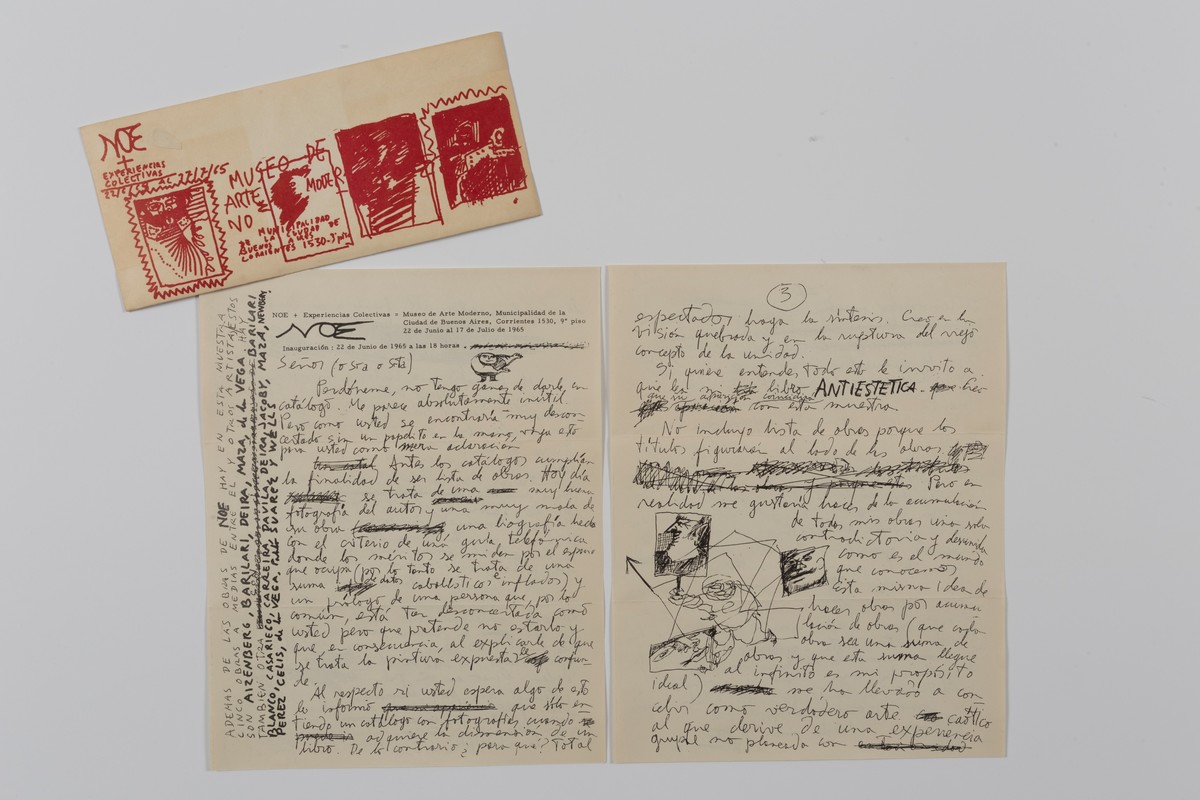 NOE
+
EXPERIENCIAS
COLECTIVAS
22/6/65 AL 17/7/65
MUSEO DE
ARTE MODER
NO
MUNICIPALIDAD
DE LA CIUDAD DE
BUENOS AIRES
CORRIENTES 1530-9º piso
ADEMAS DE LAS OBRAS DE NOE HAY EN ESTA MUESTRA
CINCO OBRAS A MEDIAS ENTRE EL Y OTROS ARTISTAS ESTOS
SON AIZENBERG, BARILARI, DEIRA, MAZA, de la VEGA. HAY
TAMBIEN OTRA BARILARI
BLANCO, CASARIEGO, CARREIRA, DAVILA, DEIRA, JACOBY, MAZA, NEWBERY,
PEREZ CELIS, de la VEGA, Pablo SUAREZ Y WELLS
NOE + Experiencias Colectivas = Museo de Arte Moderno, Municipalidad de la
Ciudad de Buenos Aires, Corrientes 1530, 9º piso
22 de Junio al 17 de Julio de 1965
NOE
Inauguración : 22 de Junio de 1965 a las 18 horas .
Señor (o Sra o Srta)
Perdóneme, no tengo ganas de darle un
catálogo. Me parece absolutamente inutil.
Pero como usted se encontraría muy descon-
certado sin un papelito en la mano, vaya esto
para usted como mera aclaración
Antes los catálogos cumplían
la finalidad de ser lista de obras. Hoy día
se trata de una muy buena
fotografía del autor y una muy mala de
su obra una biografía hecha
con el criterio de una guía telefónica
donde los méritos se miden por el espacio
que ocupa (por lo tanto se trata de una
suma de datos cabalísticos e inflados) y
un prólogo de una persona que, por lo
común, está tan desconcertada como
usted pero que pretende no estarlo y
que, en consecuencia, al explicarle de que
se trata la pintura expuesta le confun-
de.
Al respecto si usted espera algo de esto
le informo que sólo en-
tiendo un catálogo con fotografías cuando
adquiere la dimensión de un
libro. De lo contrario ¿para qué? Total
3
espectador haga la síntesis. Creo en la
visión quebrada y en la ruptura del viejo
concepto de la unidad.
Si quiere entender todo esto le invito a
que lea mi libro ANTIESTETICA. Creo
que su aparición coincidirá
con esta muestra.
No incluyo lista de obras porque los
titulos figurarán al lado de las obras
Pero en
realidad me gustaría hacer de la acumulación
de todas mis obras una sola
contradictoria y desunida
como es el mundo
que conocemos
Esta misma idea de
hacer obras por acumu-
lación de obras (que cada
obra sea una suma de
obras y que esta suma llegue
al infinito es mi propósito
ideal) me ha llevado a con-
cebir como verdadero arte caótico
al que derive de una experiencia
grupal no planeada con